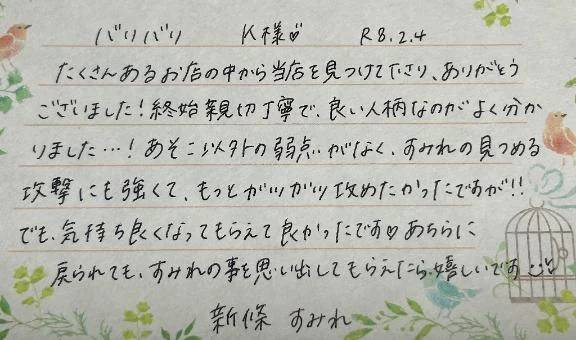 バリバリ K様♡ R8.2.4
たくさんあるお店の中から当店を見つけて下さり、ありがとう
ございました！終始親切丁寧で、良い人柄なのがよく分か
りました…！あそこ以外の弱点がなく、すみれの見つめる
攻撃にも強くて、もっとガツガツ攻めたかったですが!!
でも、気持ち良くなってもらえて良かったです♡あちらに
戻られても、すみれの事を思い出してもらえたら嬉しいです
新條 すみれ